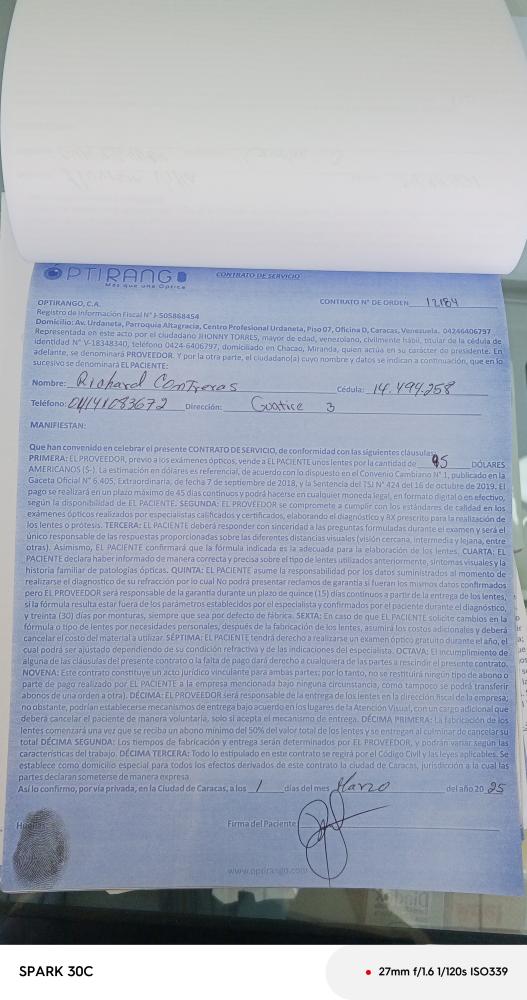 OPTIRANGO
Más que una Óptica
CONTRATO DE SERVICIO
OPTIRANGO, C.A.
CONTRATO N° DE ORDEN 12184
Registro de Información Fiscal N° J-505868454
Domicilio: Av. Urdaneta, Parroquia Altagracia, Centro Profesional Urdaneta, Piso 07, Oficina D, Caracas, Venezuela. 04246406797
Representada en este acto por el ciudadano JHONNY TORRES, mayor de edad, venezolano, civilmente hábil, titular de la cédula de
identidad N° V-18348340, teléfono 0424-6406797, domiciliado en Chacao, Miranda, quien actúa en su carácter de presidente. En
adelante, se denominará PROVEEDOR. Y por la otra parte, el ciudadano(a) cuyo nombre y datos se indican a continuación, que en lo
sucesivo se denominará EL PACIENTE:
Nombre: Richard Contreras Cédula: 14.494.258
Teléfono: 04141083672 Dirección: Guatire 3
MANIFIESTAN:
Que han convenido en celebrar el presente CONTRATO DE SERVICIO, de conformidad con las siguientes cláusulas:
PRIMERA: EL PROVEEDOR, previo a los exámenes ópticos, vende a EL PACIENTE unos lentes por la cantidad de 95 DÓLARES
AMERICANOS ($-). La estimación en dólares es referencial, de acuerdo con lo dispuesto en el Convenio Cambiario N° 1, publicado en la
Gaceta Oficial N° 6.405, Extraordinaria, de fecha 7 de septiembre de 2018, y la Sentencia del TSJ N° 424 del 16 de octubre de 2019. El
pago se realizará en un plazo máximo de 45 días continuos y podrá hacerse en cualquier moneda legal, en formato digital o en efectivo,
según la disponibilidad de EL PACIENTE. SEGUNDA: EL PROVEEDOR se compromete a cumplir con los estándares de calidad en los
exámenes ópticos realizados por especialistas calificados y certificados, elaborando el diagnóstico y RX prescrito para la realización de
los lentes o prótesis. TERCERA: EL PACIENTE deberá responder con sinceridad a las preguntas formuladas durante el examen y será el
único responsable de las respuestas proporcionadas sobre las diferentes distancias visuales (visión cercana, intermedia y lejana, entre
otras). Asimismo, EL PACIENTE confirmará que la fórmula indicada es la adecuada para la elaboración de los lentes. CUARTA: EL
PACIENTE declara haber informado de manera correcta y precisa sobre el tipo de lentes utilizados anteriormente, síntomas visuales y la
historia familiar de patologías ópticas. QUINTA: EL PACIENTE asume la responsabilidad por los datos suministrados al momento de
realizarse el diagnostico de su refracción por lo cual No podrá presentar reclamos de garantía si fueran los mismos datos confirmados
pero EL PROVEEDOR será responsable de la garantía durante un plazo de quince (15) días continuos a partir de la entrega de los lentes,
si la fórmula resulta estar fuera de los parámetros establecidos por el especialista y confirmados por el paciente durante el diagnóstico,
y treinta (30) días por monturas, siempre que sea por defecto de fábrica. SEXTA: En caso de que EL PACIENTE solicite cambios en la
fórmula o tipo de lentes por necesidades personales, después de la fabricación de los lentes, asumirá los costos adicionales y deberá
cancelar el costo del material a utilizar. SÉPTIMA: EL PACIENTE tendrá derecho a realizarse un examen óptico gratuito durante el año, el
cual podrá ser ajustado dependiendo de su condición refractiva y de las indicaciones del especialista. OCTAVA: El incumplimiento de
alguna de las cláusulas del presente contrato o la falta de pago dará derecho a cualquiera de las partes a rescindir el presente contrato.
NOVENA: Este contrato constituye un acto jurídico vinculante para ambas partes; por lo tanto, no se restituirá ningún tipo de abono o
parte de pago realizado por EL PACIENTE a la empresa mencionada bajo ninguna circunstancia, como tampoco se podrá transferir
abonos de una orden a otra). DÉCIMA: EL PROVEEDOR será responsable de la entrega de los lentes en la dirección fiscal de la empresa,
no obstante, podrían establecerse mecanismos de entrega bajo acuerdo en los lugares de la Atención Visual, con un cargo adicional que
deberá cancelar el paciente de manera voluntaria, solo si acepta el mecanismo de entrega. DÉCIMA PRIMERA: La fabricación de los
lentes comenzará una vez que se reciba un abono mínimo del 50% del valor total de los lentes y se entregan al culminar de cancelar su
total DÉCIMA SEGUNDA: Los tiempos de fabricación y entrega serán determinados por EL PROVEEDOR, y podrán variar según las
características del trabajo. DÉCIMA TERCERA: Todo lo estipulado en este contrato se regirá por el Código Civil y las leyes aplicables. Se
establece como domicilio especial para todos los efectos derivados de este contrato la ciudad de Caracas, jurisdicción a la cual las
partes declaran someterse de manera expresa.
Así lo confirmo, por vía privada, en la Ciudad de Caracas, a los 1 días del mes Marzo del año 20 25
Huellas
Firma del Paciente
www.optirango.com
SPARK 30C
27mm f/1.6 1/120s ISO339